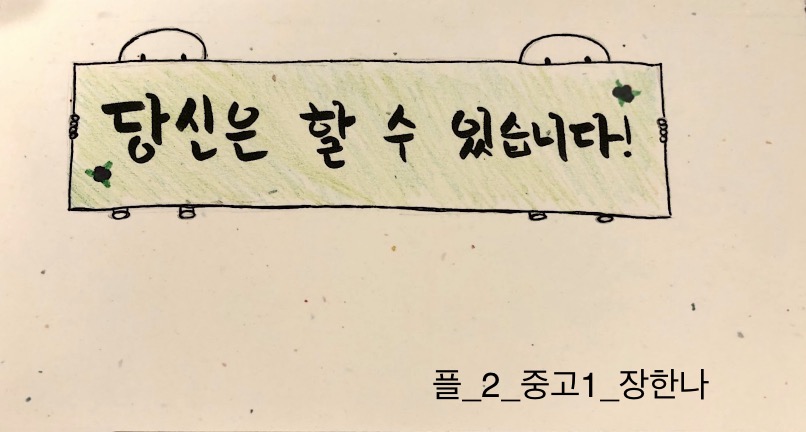 당신은 할 수 있습니다!
플_2_중고1_장한나